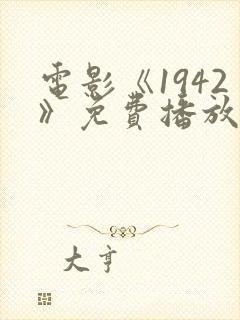 電影《1942
》免費播放
大亨